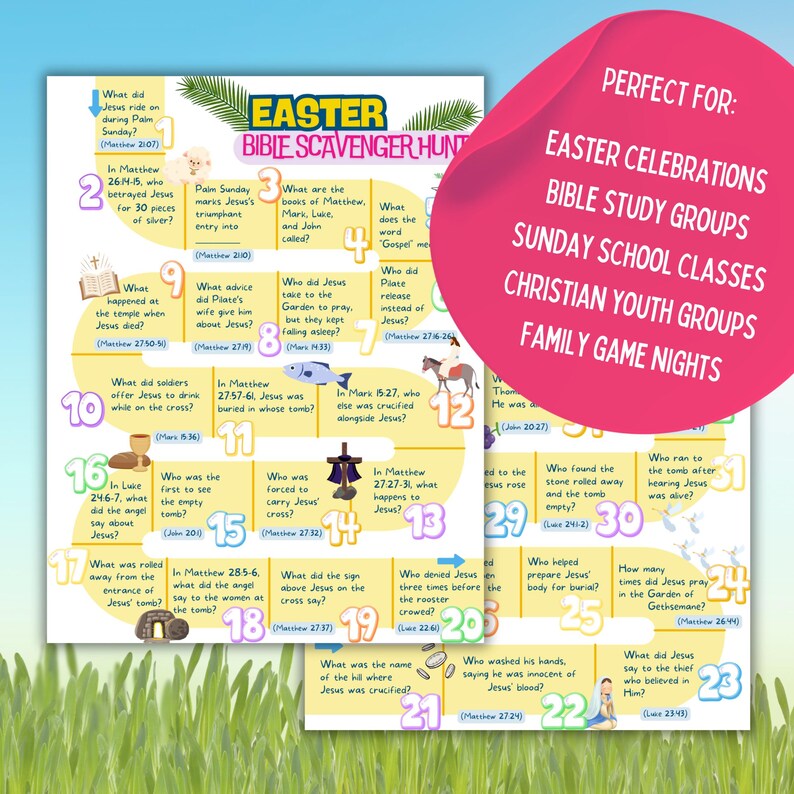 PERFECT FOR:
EASTER CELEBRATIONS
BIBLE STUDY GROUPS
SUNDAY SCHOOL CLASSES
CHRISTIAN YOUTH GROUPS
FAMILY GAME NIGHTS
EASTER
BIBLE SCAVENGER HUNT
What did
Jesus ride on
during Palm
Sunday?
(Matthew 21:07)
1
2
In Matthew
26:14-15, who
betrayed Jesus
for 30 pieces
of silver?
Palm Sunday
marks Jesus's
triumphant
entry into
________
(Matthew 21:10)
3
What are the
books of Matthew,
Mark, Luke,
and John
called?
4
What
does the
word
"Gospel"
Who did
Pilate
release
instead of
Jesus?
(Matthew 27:16-26)
6
Who did Jesus
take to the
Garden to pray,
but they kept
falling asleep?
(Mark 14:33)
7
What advice
did Pilate's
wife give him
about Jesus?
(Matthew 27:19)
8
9
What
happened at
the temple when
Jesus died?
(Matthew 27:50-51)
What did soldiers
offer Jesus to drink
while on the cross?
10
(Mark 15:36)
In Matthew
27:57-61, Jesus was
buried in whose tomb?
11
In Mark 15:27, who
else was crucified
alongside Jesus?
12
In Matthew
27:27-31, what
happens to
Jesus?
13
Who was
forced to
carry Jesus'
cross?
(Matthew 27:32)
14
Who was the
first to see
the empty
tomb?
(John 20:1)
15
16
In Luke
24:6-7, what
did the angel
say about
Jesus?
17
What was rolled
away from the
entrance of
Jesus' tomb?
In Matthew 28:5-6,
what did the angel
say to the women at
the tomb?
18
What did the sign
above Jesus on the
cross say?
(Matthew 27:37)
19
Who denied Jesus
three times before
the rooster
crowed?
(Luke 22:61)
20
What was the name
of the hill where
Jesus was crucified?
21
Who washed his hands,
saying he was innocent of
Jesus' blood?
(Matthew 27:24)
22
What did Jesus
say to the thief
who believed in
Him?
(Luke 23:43)
23
How many
times did Jesus pray
in the Garden of
Gethsemane?
(Matthew 26:44)
24
Who helped
prepare Jesus'
body for burial?
25
the
to the
rose
29
Who found the
stone rolled away
and the tomb
empty?
(Luke 24:1-2)
30
Who ran to
the tomb after
hearing Jesus
was alive?
31
He was
(John 20:27)